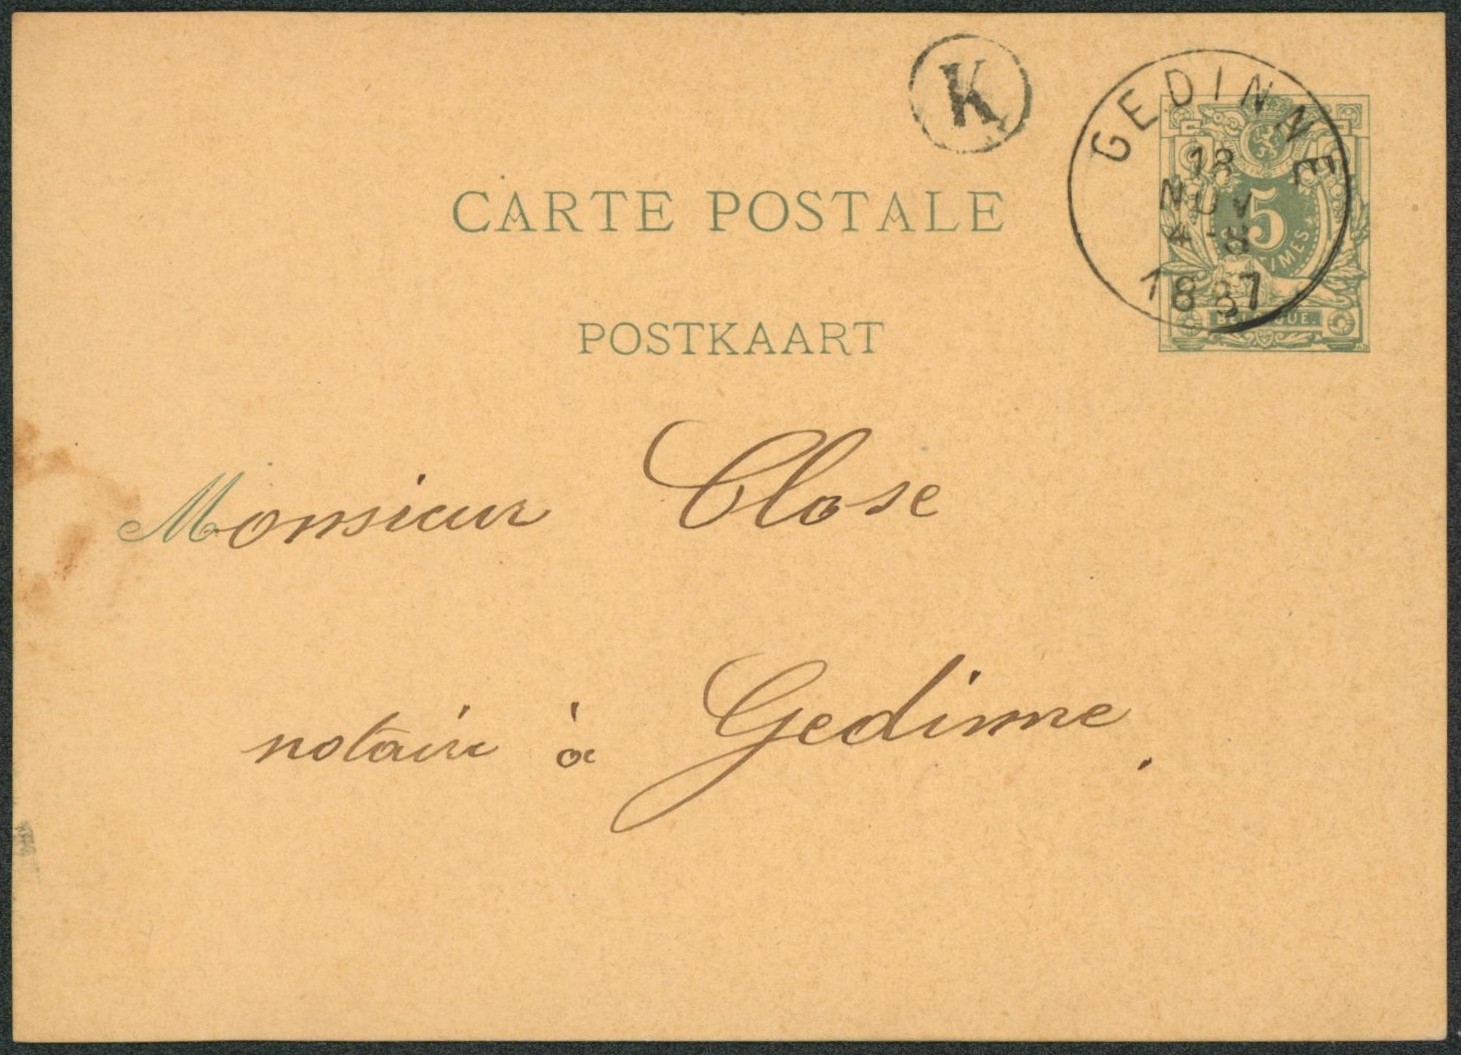 K
GEDINNE
18
NOV
4-8
1887
5
IMES
BELGIQUE
CARTE POSTALE
POSTKAART
Monsieur Close
notaire à Gedinne.